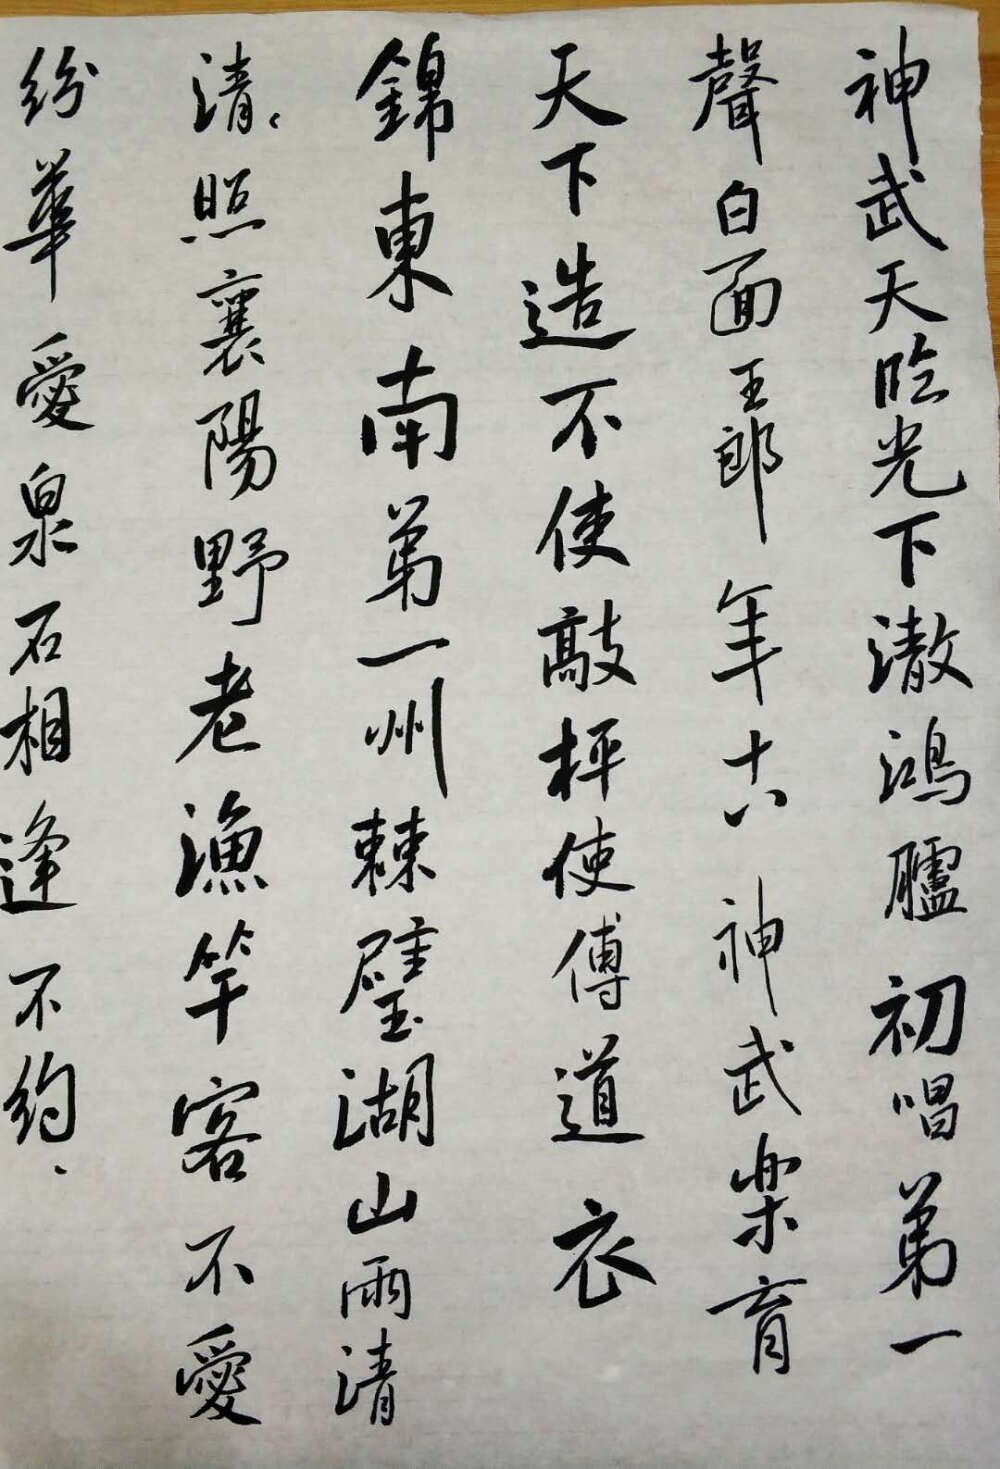 神武天臨光下澈鴻臚初唱第一
聲白面王郎年十八神武樂育
天下造不使敲枰使傅道衣
錦東南第一州棘璧湖山兩清
清照襄陽野老漁竿客不愛
紛華愛泉石相逢不約